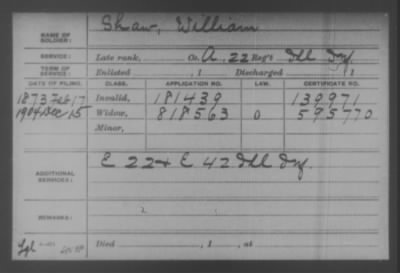 NAME OF SOLDIER: Shaw, William
SERVICE: Late rank, Co. A, 22 Reg't Ill Inf.
TERM OF SERVICE: Enlisted , 1 Discharged , 1
DATE OF FILING. CLASS. APPLICATION NO. LAW. CERTIFICATE NO.
1873 Feb 17 Invalid, 181439 139971
1904 Dec 15 Widow, 818563 0 595770
Minor,
ADDITIONAL SERVICES: E 22 & E 42 Ill Inf.
REMARKS:
Died , 1 , at